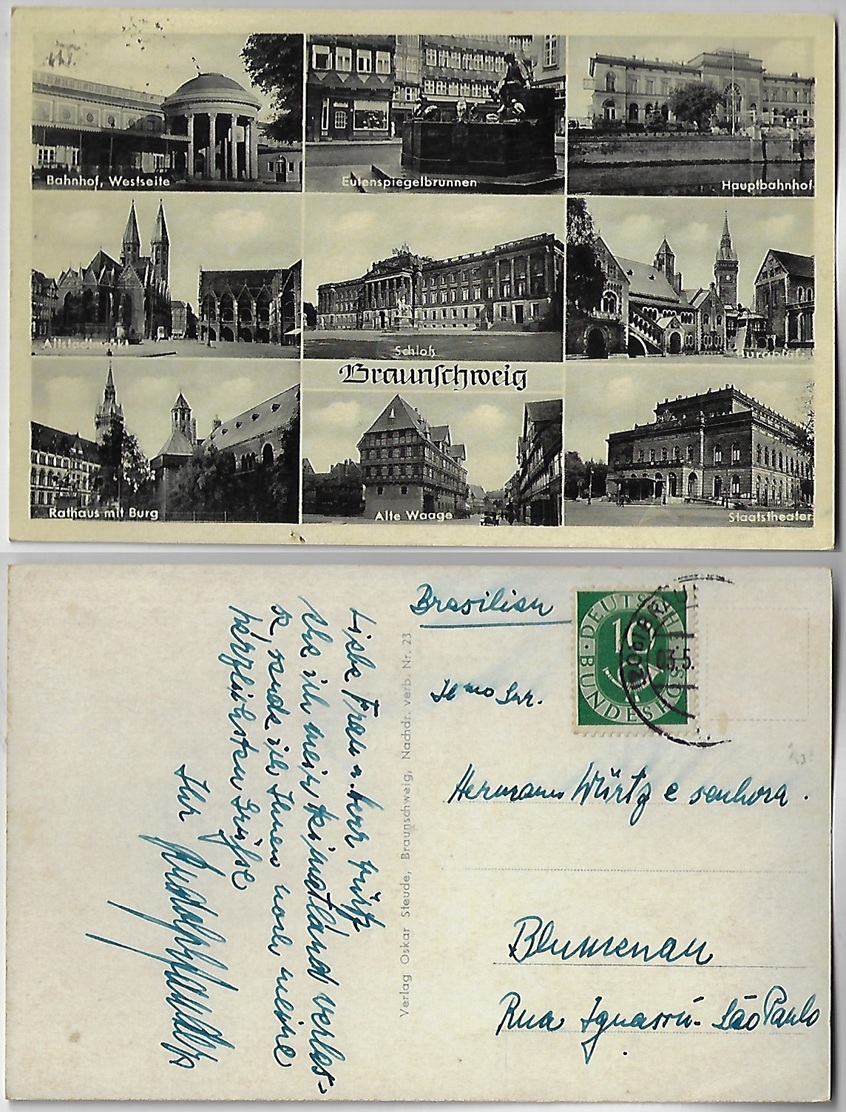 Bahnhof, Westseite
Eulenspiegelbrunnen
Hauptbahnhof
Altstadtmarkt
Schloß
Burgplatz
Braunschweig
Rathaus mit Burg
Alte Waage
Staatstheater
Liebe Frau u. Herr Würtz
Ehe ich mein Heimatland verles-
se, sende ich Ihnen noch meine
herzlichsten Grüße
Ihr
Verlag Oskar Steude, Braunschweig, Nachdr. verb. Nr. 23
Brasilien
DEUTSCHE
BUNDESPOST
10
Ilmo Snr.
Hermann Würtz e senhora.
Blumenau
Rua Iguassú - São Paulo